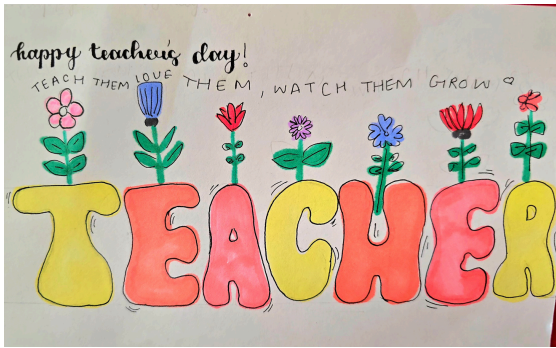 happy teacher's day!
TEACH THEM LOVE THEM, WATCH THEM GROW
TEACHER